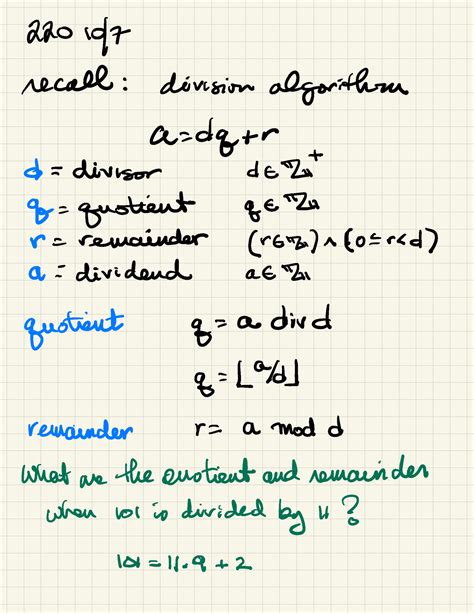 220 10/7
recall: division algorithm
a=dq+r
d = divisor d∈ℤ⁺
q = quotient q∈ℤ
r = remainder (r∈ℤ)∧(0≤r<d)
a = dividend a∈ℤ
quotient q = a div d
q = ⌊a/d⌋
remainder r= a mod d
What are the quotient and remainder
when 101 is divided by 11?
101 = 11.9 + 2